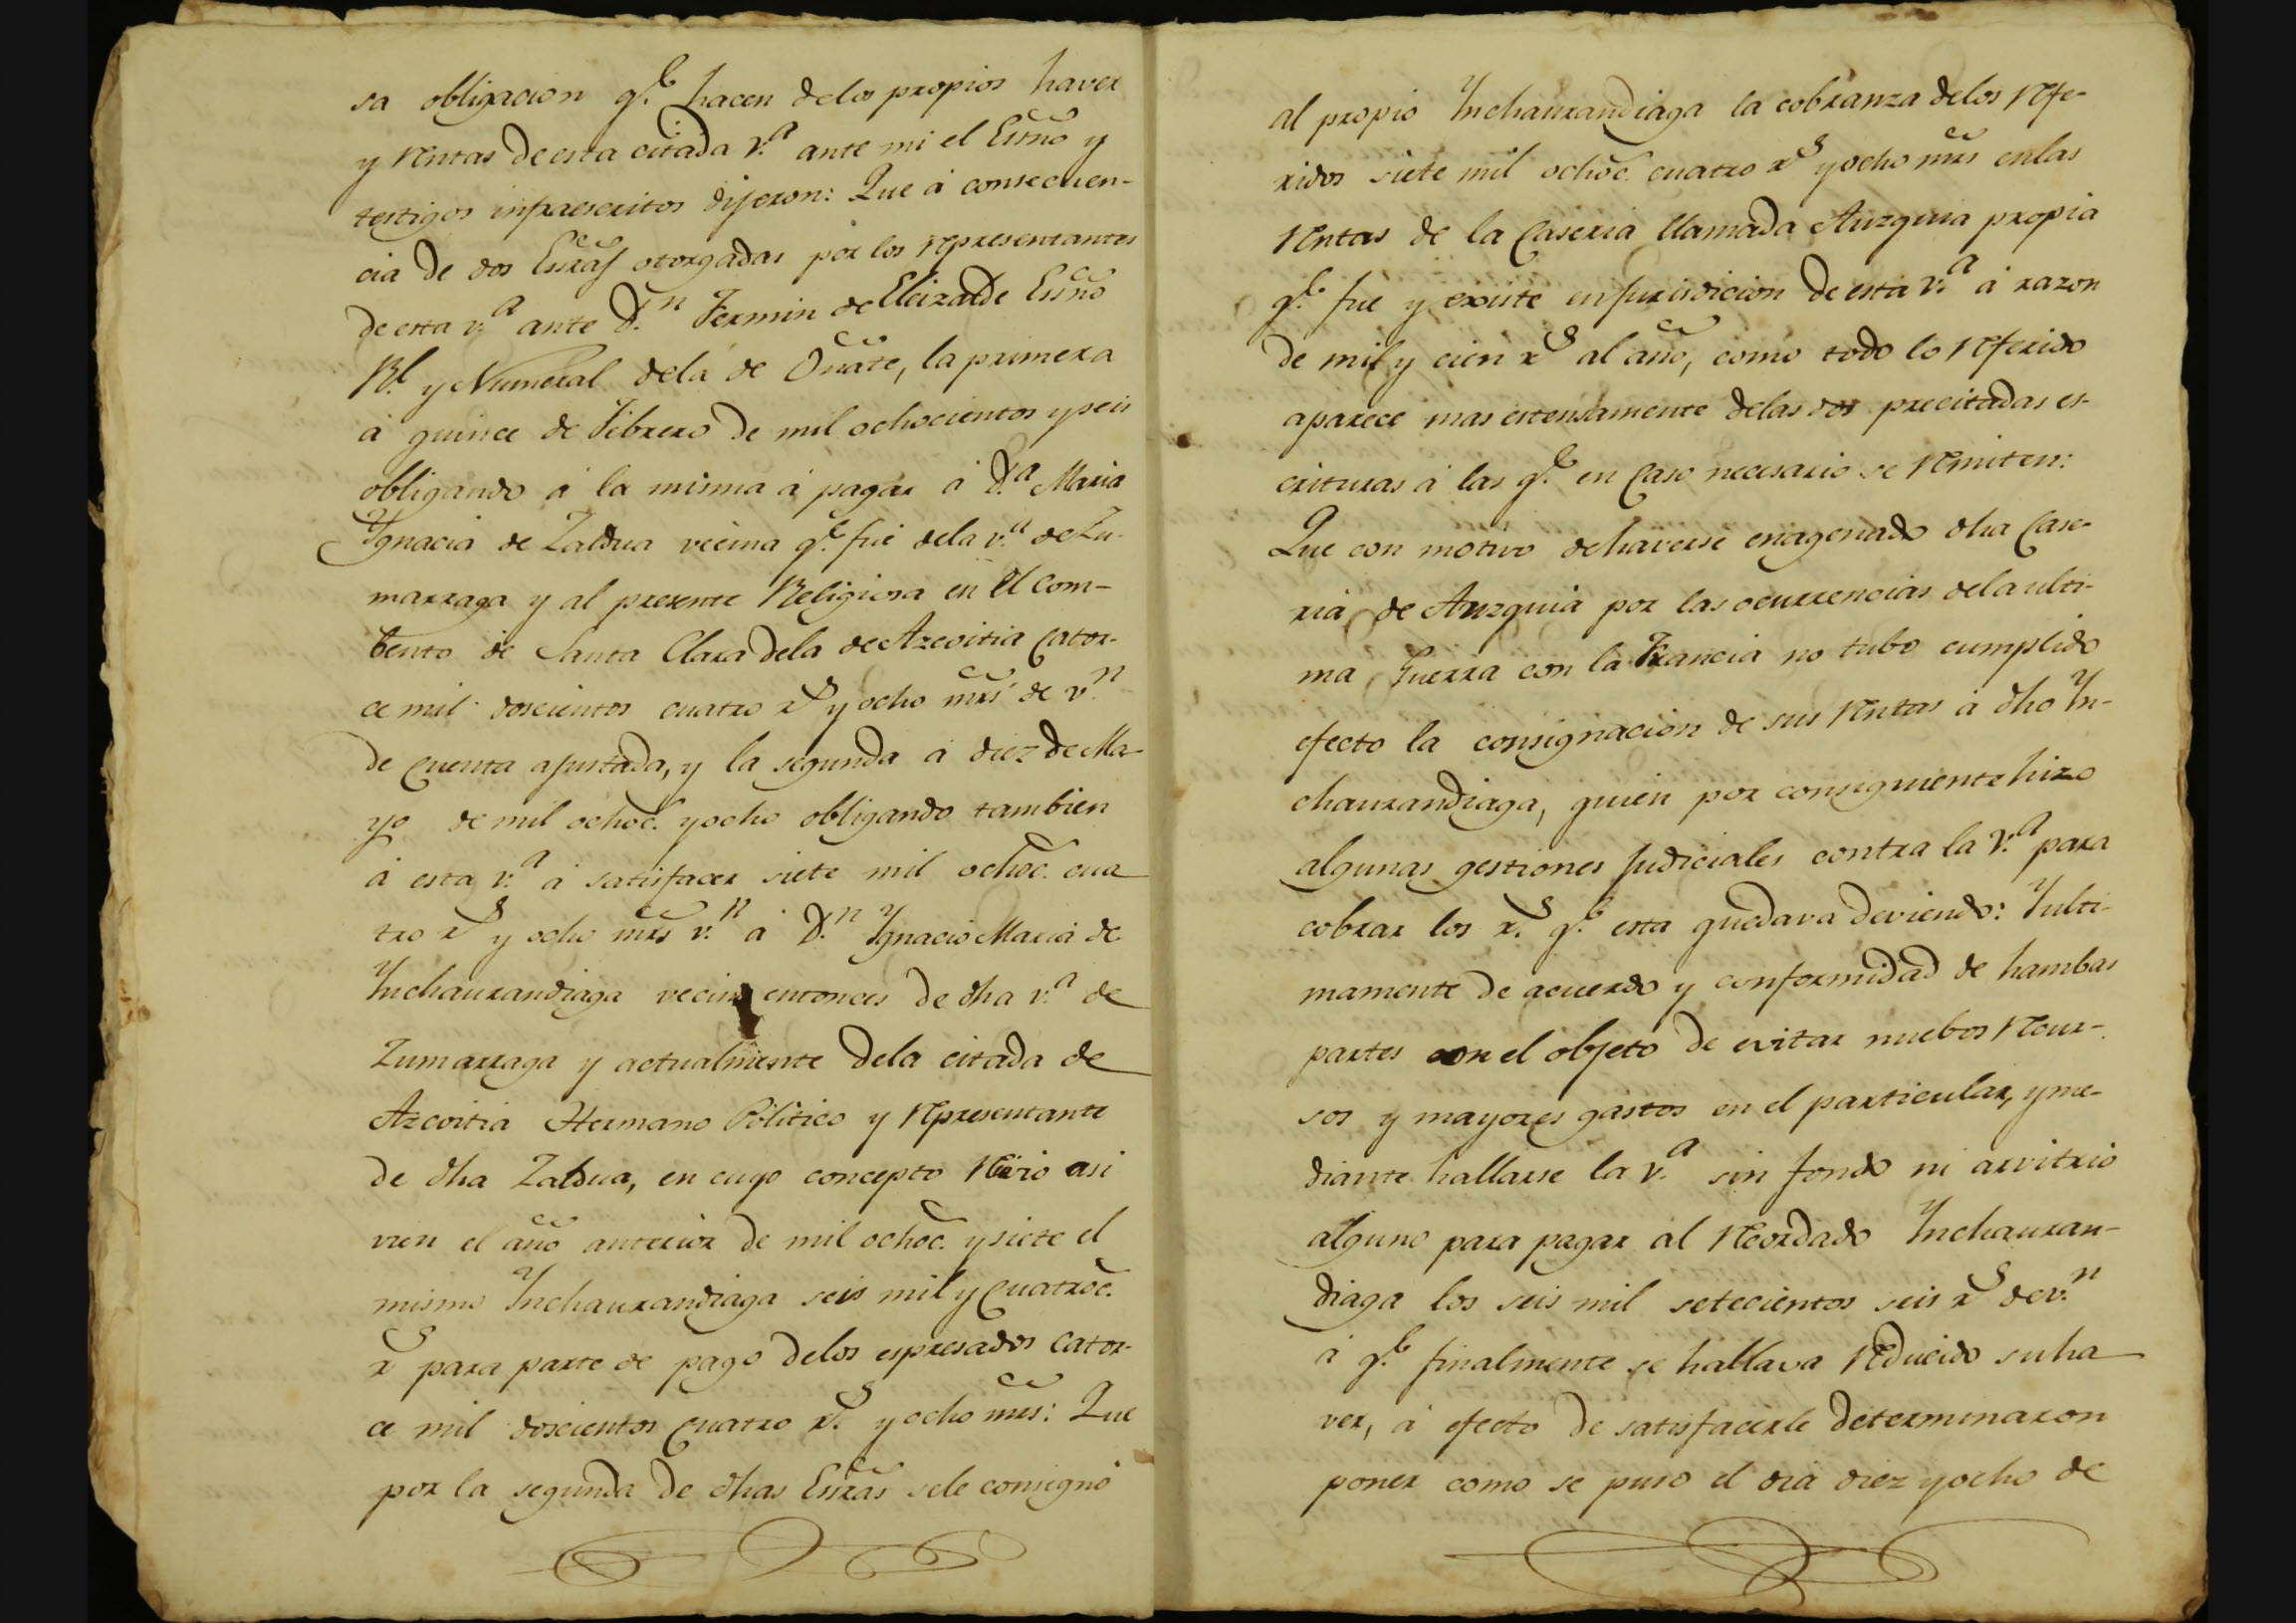 sa obligacion q.e hacen de los propios haver
y rentas de esta citada v.a ante mi el Essno y
testigos infraescritos dijeron: Que á consecuen-
cia de dos Essras otorgadas por los representantes
de esta v.a ante D.n Fermin de Elcizalde Essno
Rl. y Numeral de la de Oñate, la primera
á quince de Febrero de mil ochocientos y seis
obligando á la misma á pagar á D.a Maria
Ygnacia de Zaldua vecina q.e fué de la v.a de Zu-
marraga y al presente Religiosa en el com-
bento de Santa Clara de la de Azcoitia Cator-
ce mil doscientos cuatro r.s y ocho mrs de v.n
de Cuenta ajustada, y la segunda á diez de Ma-
yo de mil ochoc. y ocho obligando tambien
á esta v.a á satisfacer siete mil ochoc. cua
tro r.s y ocho mrs v.n á D.n Ygnacio Maria de
Ynchaurandiaga vecino entonces de dha v.a de
Zumarraga y actualmente de la citada de
Azcoitia Hermano Politico y representante
de dha Zaldua, en cuyo concepto recivio asi
vien el año anterior de mil ochoc. y siete el
mismo Ynchaurandiaga seis mil y Cuatroc.
r.s para parte de pago de los espresados Cator-
ce mil doscientos Cuatro r.s y ocho mrs: Que
por la segunda de dhas Essras se le consignó
al propio Ynchaurandiaga la cobranza de los refe-
ridos siete mil ochoc. cuatro r.s y ocho mrs en las
rentas de la Caseria llamada Auzquia propia
q.e fue y existe en jurisdicion de esta v.a á razon
de mil y cien r.s al año, como todo lo referido
aparece mas estensamente de las dos precitadas es-
crituras á las q.e en Caso necesario se remiten:
Que con motivo de haverse enagenado dha Case-
ria de Auzquia por las ocurrencias de la ulti-
ma Guerra con la Francia no tubo cumplido
efecto la consignacion de sus rentas á dho Yn-
chaurandiaga, quien por consiguiente hizo
algunas gestiones Judiciales contra la V.a para
cobrar los r.s q.e esta quedava deviendo: Y ulti-
mamente de acuerdo y conformidad de hambas
partes con el objeto de evitar nuebos recur-
sos y mayores gastos en el particular, y me-
diante hallarse la v.a sin fondo ni arvitrio
alguno para pagar al recordado Ynchauran-
diaga los seis mil setecientos seis r.s de v.n
á q.e finalmente se hallava reducido su ha
ver, á efecto de satisfacerle determinaron
poner como se puso el dia diez y ocho de